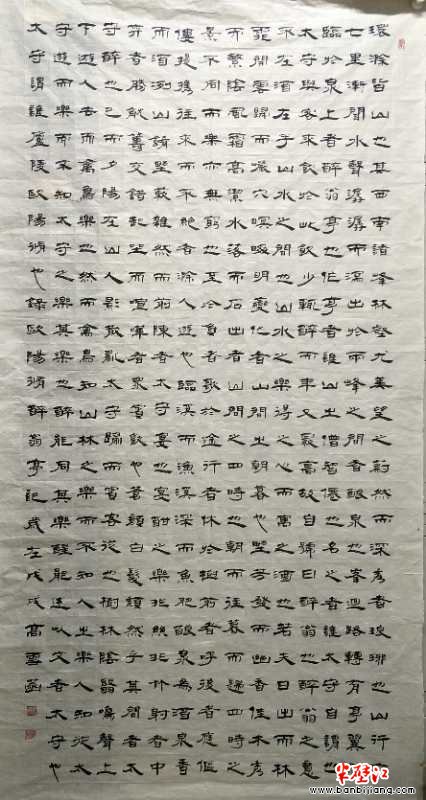 環滁皆山也其西南諸峰林壑尤美望之蔚然而深秀者琅琊也山行六
七里漸聞水聲潺潺而瀉出於兩峰之間者釀泉也峰迴路轉有亭翼然
臨於泉上者醉翁亭也作亭者誰山之僧智僊也名之者誰太守自謂也
太守與客來飲於此飲少輒醉而年又最高故自號曰醉翁也醉翁之意
不在酒在乎山水之間也山水之樂得之心而寓之酒也若夫日出而林
霏開雲歸而巖穴暝晦明變化者山間之朝暮也野芳發而幽香佳木秀
而繁陰風霜高潔水落而石出者山間之四時也朝而往暮而歸四時之
景不同而樂亦無窮也至於負者歌於途行者休於樹前者呼後者應傴
僂提攜往來而不絕者滁人遊也臨溪而漁溪深而魚肥釀泉為酒泉香
而酒洌山肴野蔌雜然而前陳者太守宴也宴酣之樂非絲非竹射者中
弈者勝觥籌交錯起坐而喧嘩者眾賓歡也蒼顏白髮頹然乎其間者太
守醉也已而夕陽在山人影散亂太守歸而賓客從也樹林陰翳鳴聲上
下遊人去而禽鳥樂也然而禽鳥知山林之樂而不知人之樂人知從太
守遊而樂而不知太守之樂其樂也醉能同其樂醒能述以文者太守也
太守謂誰廬陵歐陽脩也錄歐陽脩醉翁亭記歲在戊戌高雪
半壁江
www.banbijiang.com